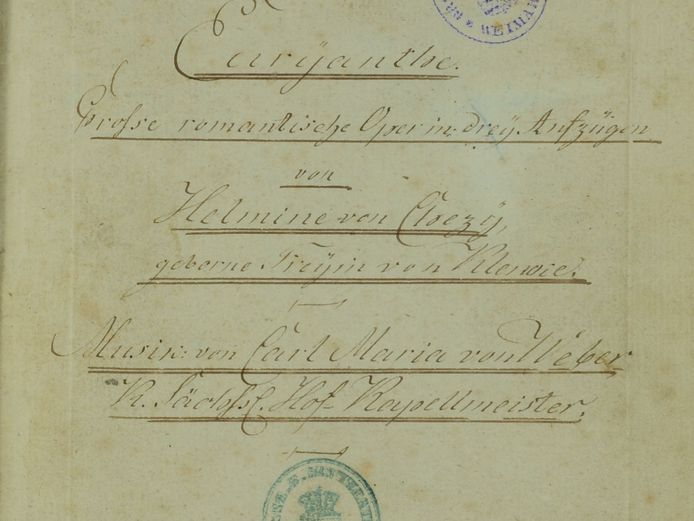 WEIMAR
Euryanthe.
Grosse romantische Oper in drey Aufzügen
von
Helmine von Chezy,
geborne Freyin von Klencke.
Musik von Carl Maria von Weber
K. Sächs. Hof-Kapellmeister.